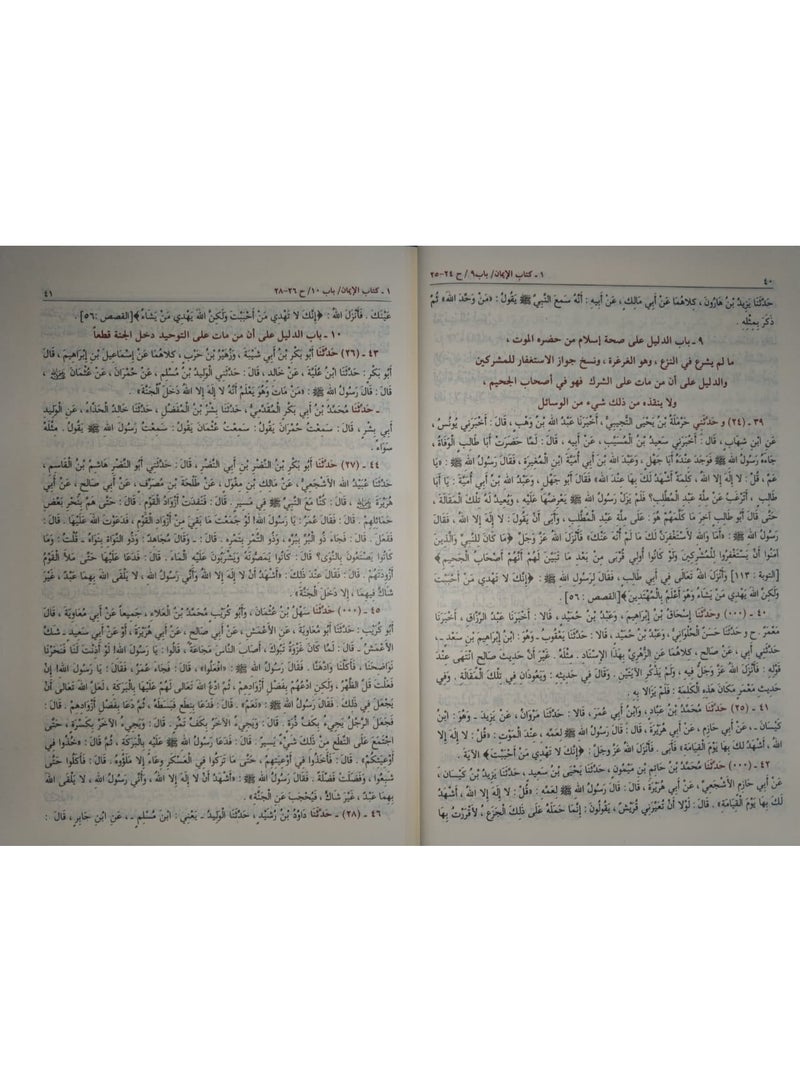 ٤٠
١ ـ كتاب الإيمان/ باب٩ / ح ٢٤-٢٥
حَدَّثَنَا يَزِيدُ بْنُ هَارُونَ، كِلَاهُمَا عَنْ أَبِي مَالِكٍ، عَنْ أَبِيهِ : أَنَّهُ سَمِعَ النَّبِيَّ ﷺ يَقُولُ : «مَنْ وَحَّدَ اللهَ» ثُمَّ
ذَكَرَ بِمِثْلِهِ .
٩ ـ باب الدليل على صحة إسلام من حضره الموت ،
ما لم يشرع في النزع ، وهو الغرغرة ، ونسخ جواز الاستغفار للمشركين
والدليل على أن من مات على الشرك فهو في أصحاب الجحيم ،
ولا ينقذه من ذلك شيء من الوسائل
٣٩ ـ (٢٤) و حَدَّثَنِي حَرْمَلَةُ بْنُ يَحْيَى التُّجِيبِيُّ ، أَخْبَرَنَا عَبْدُ اللهِ بْنُ وَهْبٍ، قَالَ : أَخْبَرَنِي يُونُسُ ،
عَنِ ابْنِ شِهَابٍ، قَالَ : أَخْبَرَنِي سَعِيدُ بْنُ الْمُسَيَّبِ، عَنْ أَبِيهِ ، قَالَ : لَمَّا حَضَرَتْ أَبَا طَالِبٍ الْوَفَاةُ ،
جَاءَهُ رَسُولُ اللهِ ﷺ فَوَجَدَ عِنْدَهُ أَبَا جَهْلٍ ، وَعَبْدَ اللهِ بْنَ أَبِي أُمَيَّةَ ابْنِ الْمُغِيرَةِ ، فَقَالَ رَسُولُ اللهِ ﷺ : «يَا
عَمِّ ، قُلْ : لَا إِلَهَ إِلَّا اللهُ ، كَلِمَةً أَشْهَدُ لَكَ بِهَا عِنْدَ اللهِ» فَقَالَ أَبُو جَهْلٍ ، وَعَبْدُ اللهِ بْنُ أَبِي أُمَيَّةَ : يَا أَبَا
طَالِبٍ ، أَتَرْغَبُ عَنْ مِلَّةِ عَبْدِ الْمُطَّلِبِ؟ فَلَمْ يَزَلْ رَسُولُ اللهِ ﷺ يَعْرِضُهَا عَلَيْهِ ، وَيُعِيدُ لَهُ تِلْكَ الْمَقَالَةَ ،
حَتَّى قَالَ أَبُو طَالِبٍ آخِرَ مَا كَلَّمَهُمْ هُوَ : عَلَى مِلَّةِ عَبْدِ الْمُطَّلِبِ ، وَأَبَى أَنْ يَقُولَ : لَا إِلَهَ إِلَّا اللهُ ، فَقَالَ
رَسُولُ اللهِ ﷺ : «أَمَا وَاللهِ لَأَسْتَغْفِرَنَّ لَكَ مَا لَمْ أُنْهَ عَنْكَ» فَأَنْزَلَ اللهُ عَزَّ وَجَلَّ ﴿مَا كَانَ لِلنَّبِيِّ وَالَّذِينَ
آمَنُوا أَنْ يَسْتَغْفِرُوا لِلْمُشْرِكِينَ وَلَوْ كَانُوا أُولِي قُرْبَى مِنْ بَعْدِ مَا تَبَيَّنَ لَهُمْ أَنَّهُمْ أَصْحَابُ الْجَحِيمِ﴾
[التوبة : ١١٣] وَأَنْزَلَ اللهُ تَعَالَى فِي أَبِي طَالِبٍ، فَقَالَ لِرَسُولِ اللهِ ﷺ : ﴿إِنَّكَ لَا تَهْدِي مَنْ أَحْبَبْتَ
وَلَكِنَّ اللهَ يَهْدِي مَنْ يَشَاءُ وَهُوَ أَعْلَمُ بِالْمُهْتَدِينَ﴾[القصص : ٥٦] .
٤٠ ـ (٠٠٠) وحَدَّثَنَا إِسْحَاقُ بْنُ إِبْرَاهِيمَ ، وَعَبْدُ بْنُ حُمَيْدٍ ، قَالَا : أَخْبَرَنَا عَبْدُ الرَّزَّاقِ ، أَخْبَرَنَا
مَعْمَرٌ . ح و حَدَّثَنَا حَسَنٌ الْحُلْوَانِيُّ ، وَعَبْدُ بْنُ حُمَيْدٍ ، قَالَا : حَدَّثَنَا يَعْقُوبُ ـ وَهُوَ : ابْنُ إِبْرَاهِيمَ بْنِ سَعْدٍ ـ،
حَدَّثَنِي أَبِي ، عَنْ صَالِحٍ ، كِلَاهُمَا عَنِ الزُّهْرِيِّ بِهَذَا الْإِسْنَادِ . مِثْلَهُ . غَيْرَ أَنَّ حَدِيثَ صَالِحٍ انْتَهَى عِنْدَ
قَوْلِهِ . فَأَنْزَلَ اللهُ عَزَّ وَجَلَّ فِيهِ ، وَلَمْ يَذْكُرِ الْآيَتَيْنِ . وَقَالَ فِي حَدِيثِهِ : وَيَعُودَانِ فِي تِلْكَ الْمَقَالَةِ . وَفِي
حَدِيثِ مَعْمَرٍ مَكَانَ هَذِهِ الْكَلِمَةِ : فَلَمْ يَزَالَا بِهِ .
٤١ ـ (٢٥) حَدَّثَنَا مُحَمَّدُ بْنُ عَبَّادٍ ، وَابْنُ أَبِي عُمَرَ، قَالَا : حَدَّثَنَا مَرْوَانُ ، عَنْ يَزِيدَ ـ وَهُوَ : ابْنُ
كَيْسَانَ ـ ، عَنْ أَبِي حَازِمٍ ، عَنْ أَبِي هُرَيْرَةَ ، قَالَ : قَالَ رَسُولُ اللهِ ﷺ لِعَمِّهِ ، عِنْدَ الْمَوْتِ : «قُلْ : لَا إِلَهَ إِلَّا
اللهُ ، أَشْهَدُ لَكَ بِهَا يَوْمَ الْقِيَامَةِ» فَأَبَى . فَأَنْزَلَ اللهُ عَزَّ وَجَلَّ : ﴿إِنَّكَ لَا تَهْدِي مَنْ أَحْبَبْتَ﴾ الْآيَةَ .
٤٢ ـ (٠٠٠) حَدَّثَنَا مُحَمَّدُ بْنُ حَاتِمِ بْنِ مَيْمُونٍ ، حَدَّثَنَا يَحْيَى بْنُ سَعِيدٍ ، حَدَّثَنَا يَزِيدُ بْنُ كَيْسَانَ ،
عَنْ أَبِي حَازِمٍ الْأَشْجَعِيِّ ، عَنْ أَبِي هُرَيْرَةَ ، قَالَ : قَالَ رَسُولُ اللهِ ﷺ لِعَمِّهِ : «قُلْ : لَا إِلَهَ إِلَّا اللهُ ، أَشْهَدُ
لَكَ بِهَا يَوْمَ الْقِيَامَةِ» . قَالَ : لَوْلَا أَنْ تُعَيِّرَنِي قُرَيْشٌ ، يَقُولُونَ : إِنَّمَا حَمَلَهُ عَلَى ذَلِكَ الْجَزَعُ ، لَأَقْرَرْتُ بِهَا
١ ـ كتاب الإيمان/ باب ١٠/ ح ٢٦-٢٨
٤١
عَيْنَكَ . فَأَنْزَلَ اللهُ : ﴿إِنَّكَ لَا تَهْدِي مَنْ أَحْبَبْتَ وَلَكِنَّ اللهَ يَهْدِي مَنْ يَشَاءُ﴾[القصص :٥٦] .
١٠ ـ باب الدليل على أن من مات على التوحيد دخل الجنة قطعاً
٤٣ ـ (٢٦) حَدَّثَنَا أَبُو بَكْرِ بْنُ أَبِي شَيْبَةَ ، وَزُهَيْرُ بْنُ حَرْبٍ ، كِلَاهُمَا عَنْ إِسْمَاعِيلَ بْنِ إِبْرَاهِيمَ ، قَالَ
أَبُو بَكْرٍ : حَدَّثَنَا ابْنُ عُلَيَّةَ ، عَنْ خَالِدٍ ، قَالَ : حَدَّثَنِي الْوَلِيدُ بْنُ مُسْلِمٍ ، عَنْ حُمْرَانَ ، عَنْ عُثْمَانَ ،
قَالَ : قَالَ رَسُولُ اللهِ ﷺ : «مَنْ مَاتَ وَهُوَ يَعْلَمُ أَنَّهُ لَا إِلَهَ إِلَّا اللهُ دَخَلَ الْجَنَّةَ» .
ـ حَدَّثَنَا مُحَمَّدُ بْنُ أَبِي بَكْرٍ الْمُقَدَّمِيُّ ، حَدَّثَنَا بِشْرُ بْنُ الْمُفَضَّلِ ، حَدَّثَنَا خَالِدٌ الْحَذَّاءُ، عَنِ الْوَلِيدِ
أَبِي بِشْرٍ ، قَالَ : سَمِعْتُ حُمْرَانَ يَقُولُ : سَمِعْتُ عُثْمَانَ يَقُولُ : سَمِعْتُ رَسُولَ اللهِ ﷺ يَقُولُ . مِثْلَهُ
سَوَاءً .
٤٤ ـ (٢٧) حَدَّثَنَا أَبُو بَكْرِ بْنُ النَّضْرِ بْنِ أَبِي النَّضْرِ ، قَالَ : حَدَّثَنِي أَبُو النَّضْرِ هَاشِمُ بْنُ الْقَاسِمِ ،
حَدَّثَنَا عُبَيْدُ اللهِ الْأَشْجَعِيُّ ، عَنْ مَالِكِ بْنِ مِغْوَلٍ ، عَنْ طَلْحَةَ بْنِ مُصَرِّفٍ ، عَنْ أَبِي صَالِحٍ ، عَنْ أَبِي
هُرَيْرَةَ ، قَالَ : كُنَّا مَعَ النَّبِيِّ ﷺ فِي مَسِيرٍ . قَالَ : فَنَفِدَتْ أَزْوَادُ الْقَوْمِ . قَالَ : حَتَّى هَمَّ بِنَحْرِ بَعْضِ
حَمَائِلِهِمْ . قَالَ : فَقَالَ عُمَرُ : يَا رَسُولَ اللهِ! لَوْ جَمَعْتَ مَا بَقِيَ مِنْ أَزْوَادِ الْقَوْمِ ، فَدَعَوْتَ اللهَ عَلَيْهَا . قَالَ :
فَفَعَلَ . قَالَ : فَجَاءَ ذُو الْبُرِّ بِبُرِّهِ ، وَذُو التَّمْرِ بِتَمْرِهِ . قَالَ : ـ وَقَالَ مُجَاهِدٌ : وَذُو النَّوَاةِ بِنَوَاهُ ـ قُلْتُ : وَمَا
كَانُوا يَصْنَعُونَ بِالنَّوَى؟ قَالَ : كَانُوا يَمَصُّونَهُ وَيَشْرَبُونَ عَلَيْهِ الْمَاءَ . قَالَ : فَدَعَا عَلَيْهَا حَتَّى مَلَأَ الْقَوْمُ
أَزْوِدَتَهُمْ . قَالَ : فَقَالَ عِنْدَ ذَلِكَ : «أَشْهَدُ أَنْ لَا إِلَهَ إِلَّا اللهُ وَأَنِّي رَسُولُ اللهِ ، لَا يَلْقَى اللهَ بِهِمَا عَبْدٌ ، غَيْرَ
شَاكٍّ فِيهِمَا ، إِلَّا دَخَلَ الْجَنَّةَ» .
٤٥ ـ (٠٠٠) حَدَّثَنَا سَهْلُ بْنُ عُثْمَانَ ، وَأَبُو كُرَيْبٍ مُحَمَّدُ بْنُ الْعَلَاءِ ، جَمِيعاً عَنْ أَبِي مُعَاوِيَةَ ، قَالَ
أَبُو كُرَيْبٍ : حَدَّثَنَا أَبُو مُعَاوِيَةَ ، عَنِ الْأَعْمَشِ ، عَنْ أَبِي صَالِحٍ ، عَنْ أَبِي هُرَيْرَةَ ، أَوْ عَنْ أَبِي سَعِيدٍ ـ شَكَّ
الْأَعْمَشُ ـ قَالَ : لَمَّا كَانَ غَزْوَةُ تَبُوكَ ، أَصَابَ النَّاسَ مَجَاعَةٌ . قَالُوا : يَا رَسُولَ اللهِ! لَوْ أَذِنْتَ لَنَا فَنَحَرْنَا
نَوَاضِحَنَا ، فَأَكَلْنَا وَادَّهَنَّا . فَقَالَ رَسُولُ اللهِ ﷺ : «افْعَلُوا» . قَالَ : فَجَاءَ عُمَرُ ، فَقَالَ : يَا رَسُولَ اللهِ! إِنْ
فَعَلْتَ قَلَّ الظَّهْرُ ، وَلَكِنِ ادْعُهُمْ بِفَضْلِ أَزْوَادِهِمْ ، ثُمَّ ادْعُ اللهَ تَعَالَى لَهُمْ عَلَيْهَا بِالْبَرَكَةِ ، لَعَلَّ اللهَ تَعَالَى أَنْ
يَجْعَلَ فِي ذَلِكَ . فَقَالَ رَسُولُ اللهِ ﷺ : «نَعَمْ» . قَالَ : فَدَعَا بِنِطَعٍ فَبَسَطَهُ ، ثُمَّ دَعَا بِفَضْلِ أَزْوَادِهِمْ . قَالَ :
فَجَعَلَ الرَّجُلُ يَجِيءُ بِكَفِّ ذُرَةٍ . قَالَ : وَيَجِيءُ الْآخَرُ بِكَفِّ تَمْرٍ . قَالَ : وَيَجِيءُ الْآخَرُ بِكِسْرَةٍ ، حَتَّى
اجْتَمَعَ عَلَى النِّطَعِ مِنْ ذَلِكَ شَيْءٌ يَسِيرٌ . قَالَ : فَدَعَا رَسُولُ اللهِ ﷺ عَلَيْهِ بِالْبَرَكَةِ ، ثُمَّ قَالَ : «خُذُوا فِي
أَوْعِيَتِكُمْ» . قَالَ : فَأَخَذُوا فِي أَوْعِيَتِهِمْ ، حَتَّى مَا تَرَكُوا فِي الْعَسْكَرِ وِعَاءً إِلَّا مَلَؤُوهُ . قَالَ : فَأَكَلُوا حَتَّى
شَبِعُوا ، وَفَضَلَتْ فَضْلَةٌ . فَقَالَ رَسُولُ اللهِ ﷺ : «أَشْهَدُ أَنْ لَا إِلَهَ إِلَّا اللهُ ، وَأَنِّي رَسُولُ اللهِ ، لَا يَلْقَى اللهَ
بِهِمَا عَبْدٌ ، غَيْرَ شَاكٍّ ، فَيُحْجَبَ عَنِ الْجَنَّةِ» .
٤٦ ـ (٢٨) ـ حَدَّثَنَا دَاوُدُ بْنُ رُشَيْدٍ ، حَدَّثَنَا الْوَلِيدُ ـ يَعْنِي : ابْنَ مُسْلِمٍ ـ ، عَنِ ابْنِ جَابِرٍ ، قَالَ :